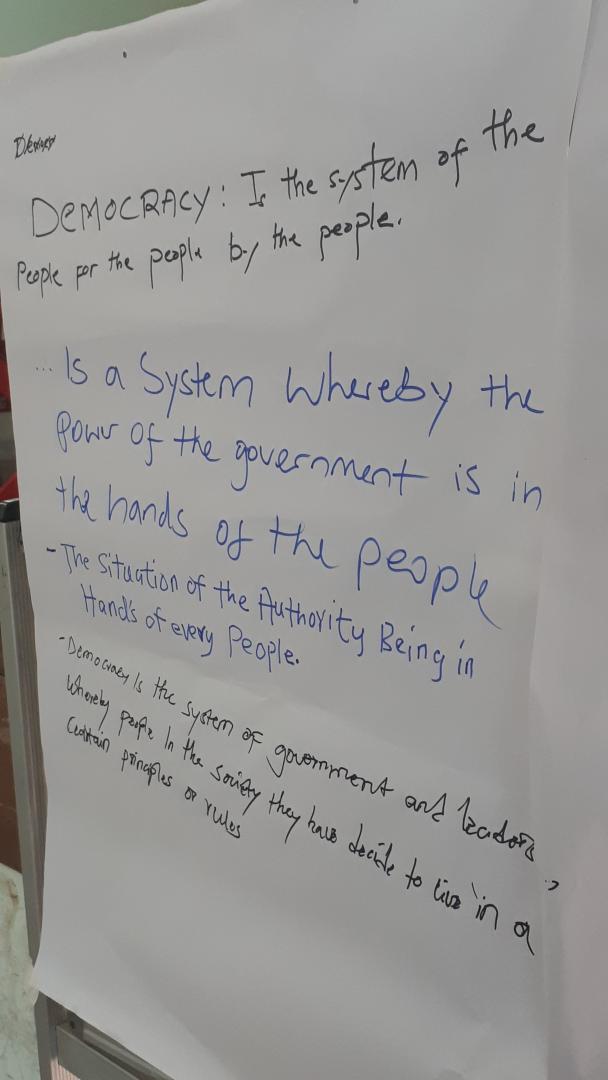 DEMOCRACY: Is the system of the
People for the people by the people.
... Is a System Whereby the
Power of the government is in
the hands of the people
- The Situation of the Authority Being in
Hands of every People.
- Democracy Is the system of government and leaders,
Whereby people In the society they have decide to live in a
Certain principles or rules